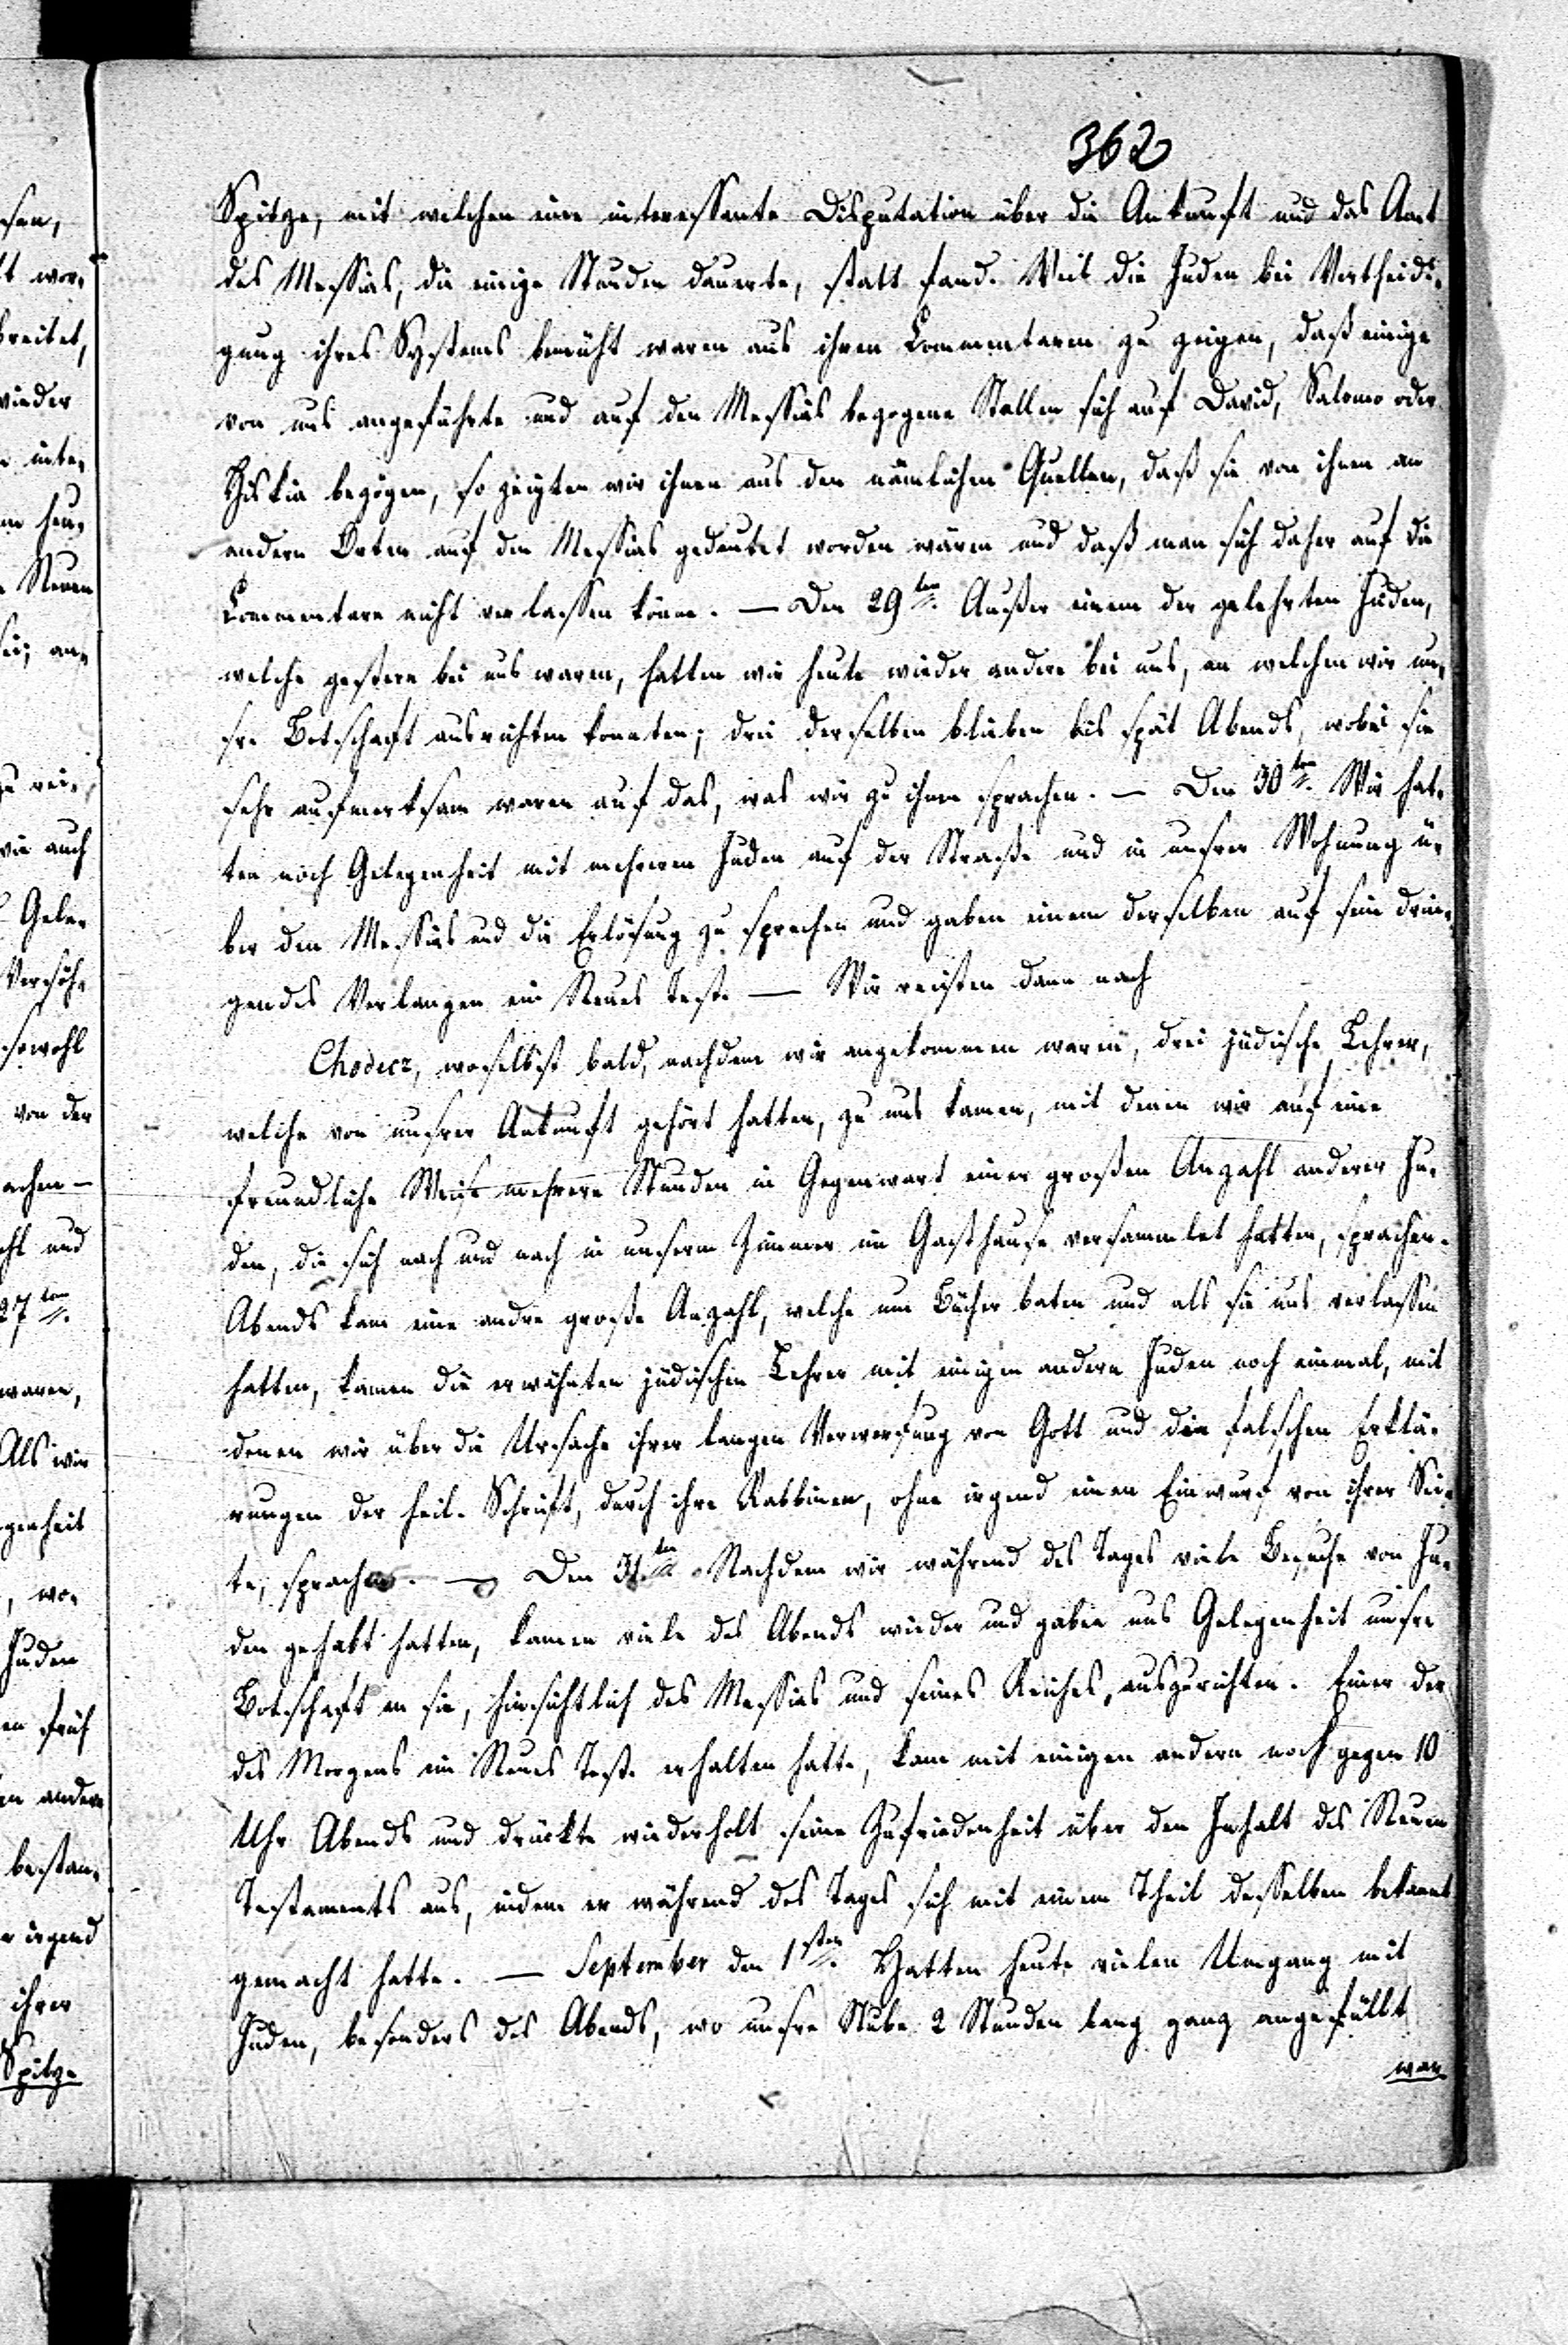 362
Spitze, mit welchen eine interessante Disputation über die Ankunft und das Amt
des Messias, die einige Stunden dauerte, statt fand. Weil die Juden bei Vertheidi-
gung ihres Systems bemüht waren aus ihren Commentaren zu zeigen, daß einige
von uns angeführte und auf den Messias bezogene Stellen sich auf David, Salomo oder
Hiskia bezögen, so zeigten wir ihnen aus den nämlichen Quellen, daß sie von ihnen an
andern Orten auf den Messias gedeutet worden wären und daß man sich daher auf die
Commentare nicht verlassen könne. — Den 29ten. Außer einem der gelehrten Juden,
welche gestern bei uns waren, hatten wir heute wieder andere bei uns, an welchen wir un-
sre Botschaft ausrichten konnten; drei derselben blieben bis spät Abends, wobei sie
sehr aufmerksam waren auf das, was wir zu ihnen sprachen. — Den 30ten. Wir hat-
ten noch Gelegenheit mit mehreren Juden auf der Straße und in unsrer Wohnung ü-
ber den Messias und die Erlösung zu sprechen und gaben einem derselben auf sein drin-
gendes Verlangen ein Neues Test. — Wir reisten dann nach
Chodecz, woselbst bald, nachdem wir angekommen waren, drei jüdische Lehrer,
welche von unsrer Ankunft gehört hatten, zu uns kamen, mit denen wir auf eine
freundliche Weise mehrere Stunden in Gegenwart einer großen Anzahl anderer Ju-
den, die sich nach und nach in unserm Zimmer im Gasthause versammlet hatten, sprachen.
Abends kam eine andre große Anzahl, welche um Bücher baten und als sie uns verlassen
hatten, kamen die erwähnten jüdischen Lehrer mit einigen andern Juden noch einmal, mit
denen wir über die Ursache ihrer langen Verwerfung von Gott und die falschen Erklä-
rungen der heil. Schrift, durch ihre Rabbinen, ohne irgend einen Einwurf von ihrer Sei-
te, sprachen. — Den 31.ten Nachdem wir während des Tages viele Besuche von Ju-
den gehabt hatten, kamen viele des Abends wieder und gaben uns Gelegenheit unsre
Botschaft an sie, hinsichtlich des Messias und seines Reiches, auszurichten. Einer der
des Morgens ein Neues Test. erhalten hatte, kam mit einigen andern noch gegen 10
Uhr Abends und drückte wiederholt seine Zufriedenheit über den Inhalt des Neuen
Testaments aus, indem er während des Tages sich mit einem Theil desselben bekannt
gemacht hatte. — September den 1sten. Hatten heute vielen Umgang mit
Juden, besonders des Abends, wo unsre Stube 2 Stunden lang ganz angefüllt
war